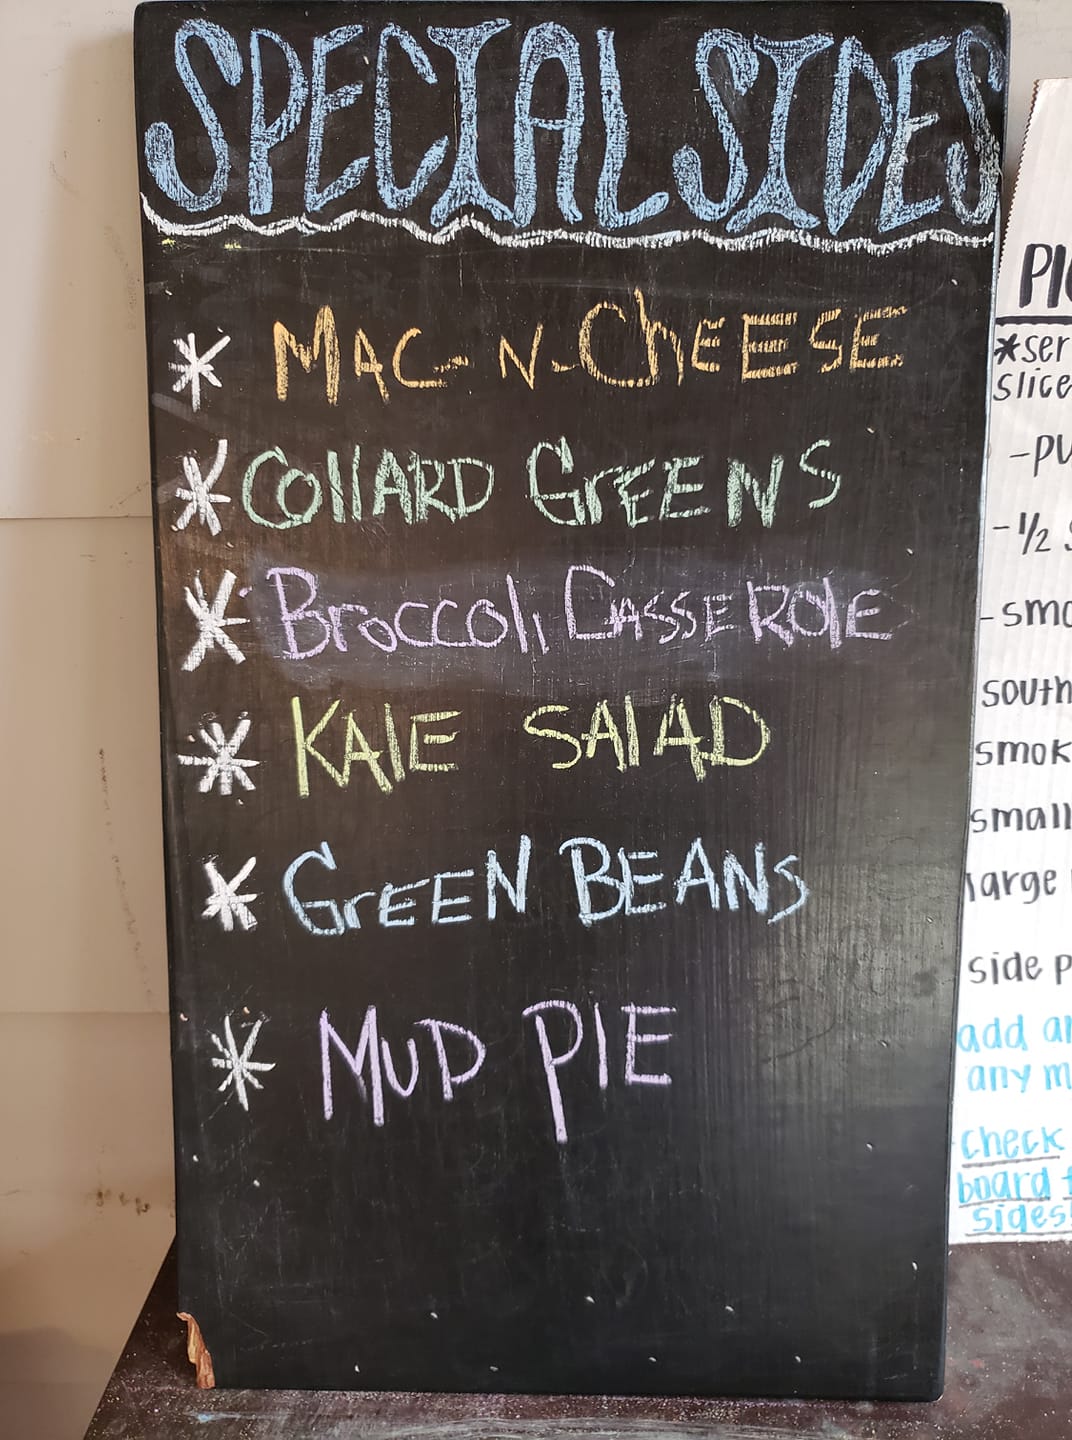 SPECIAL SIDES
* MAC-N-CHEESE
* COllARD GrEENS
* Broccoli CASSEROlE
* KAlE SAlAD
* GrEEN BEANS
* MUD PIE
*ser
slice
-1/2
- smo
south
smok
small
large
side p
add an
any m
check
board
sides!